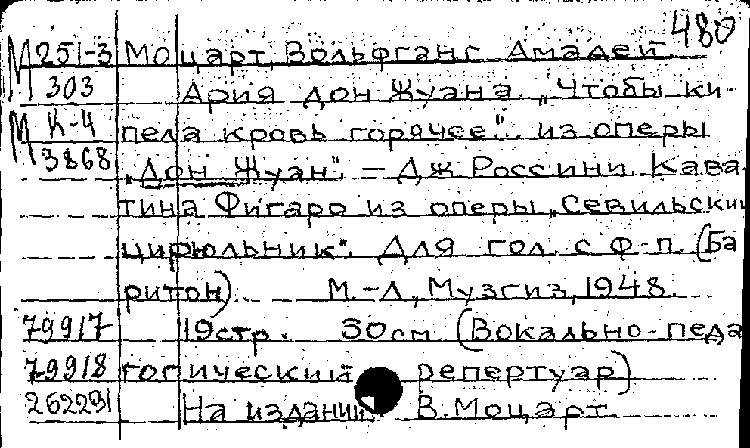 480
М 251-3 Моцарт, Вольфганг Амадей
М 303 Ария Дон Жуана „Чтобы ки-
М К-4 пела кровь горячее". из оперы
3868 „Дон Жуан". — Дж. Россини. Кава-
тина Фигаро из оперы „Севильский
цирюльник". Для гол. с ф-п. (Ба
ритон). М.-Л., Музгиз, 1948.
79917 19стр. 30см (Вокально-педа
79918 гогический репертуар)
262291 На издании: В. Моцарт.